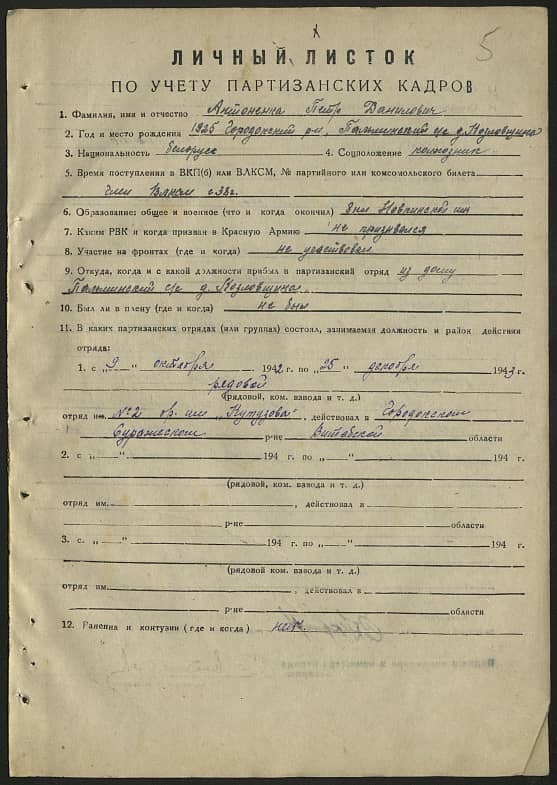 5
ЛИЧНЫЙ ЛИСТОК
ПО УЧЕТУ ПАРТИЗАНСКИХ КАДРОВ
1. Фамилия, имя и отчество Антоненка Петр Данилович
2. Год и место рождения 1925 Городокский р-н, Пальминский с/с д. Козловщина
3. Национальность белорус 4. Соцположение колхозник
5. Время поступления в ВКП(б) или ВЛКСМ, № партийного или комсомольского билета
член ВЛКСМ с
6. Образование: общее и военное (что и когда окончил)
7. Каким РВК и когда призван в Красную Армию не призывался
8. Участие на фронтах (где и когда) не участвовал
9. Откуда, когда и с какой должности прибыл в партизанский отряд из дому
Пальминский с/с д. Козловщина
10. Был ли в плену (где и когда) не был
11. В каких партизанских отрядах (или группах) состоял, занимаемая должность и район действия
отряда:
1. с „9" октября 1942 г. по „25" декабря 1943 г.
рядовой
(рядовой, ком. взвода и т. д.)
отряд им. №2 бр. им „Кутузова", действовал в Городокском
Суражском р-не Витебской области
2. с „ " 194 г. по „ " 194 г.
(рядовой, ком. взвода и т. д.)
отряд им. , действовал в
р-не области
3. с „ " 194 г. по „ " 194 г.
(рядовой, ком. взвода и т. д.)
отряд им. , действовал в
р-не области
12. Ранения и контузии (где и когда) нет.